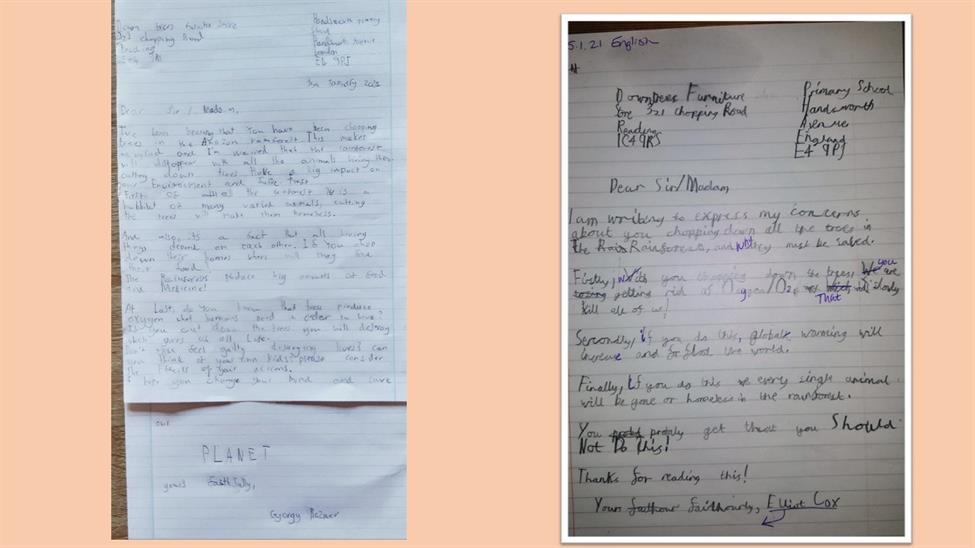 trees Furniture Store
321 chopping Road
Reading
Handsworth primary
School
Handsworth Avenue
London
E4 9PJ
January 2021
Dear Sir / Madam,
I've been hearing that you have been chopping
trees in the Amazon rainforest. This makes
me and I'm worried that the rainforest
will disappear with all the animals living there
cutting down trees have a big impact on
our Environment and
First of all the is a
habbitat of many varied animals, cutting
the trees will make them homeless.
And also its a fact that all living
things depend on each other. If you chop
down their homes where will they find
their food!
The Rainforests produce big amounts of food
and Medicine!
At Last, do you know that trees produce
oxygen what humans need in order to live?
If you cut down the trees you will destroy
which gives us all Life.
Don't you feel guilty destroying lives? can
you think of your own kids? please consider
the of your actions.
I hope you change your mind and save
our
PLANET
yours Faithfully,
Gyorgy
5.1.21 English
Downtrees Furniture
Store 321 Chopping Road
Reading
Primary School
Handsworth
Avenue
England
E4 9PJ
Dear Sir/Madam,
I am writing to express my concerns
about you chopping down all the trees in
the Rainforests, and why they must be saved.
Firstly, you chopping down the trees, you are
getting rid of Oxygen/O2 That will slowly
kill all of us!
Secondly, if you do this, global warming will
increase and flood the world.
Finally, if you do this every single animal
will be gone or homeless in the rainforest.
You get that you Should
Not Do this!
Thanks for reading this!
Yours faithfully, Elliot Cox